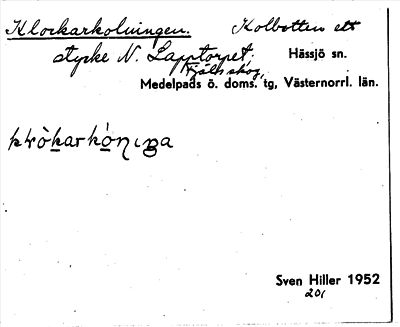 Klockarkolningen. Kolbotten ett
stycke N. Lapptorpet, Hässjö sn.
Fjäls skog,
Medelpads ö. doms. tg, Västernorrl. län.
Sven Hiller 1952
201